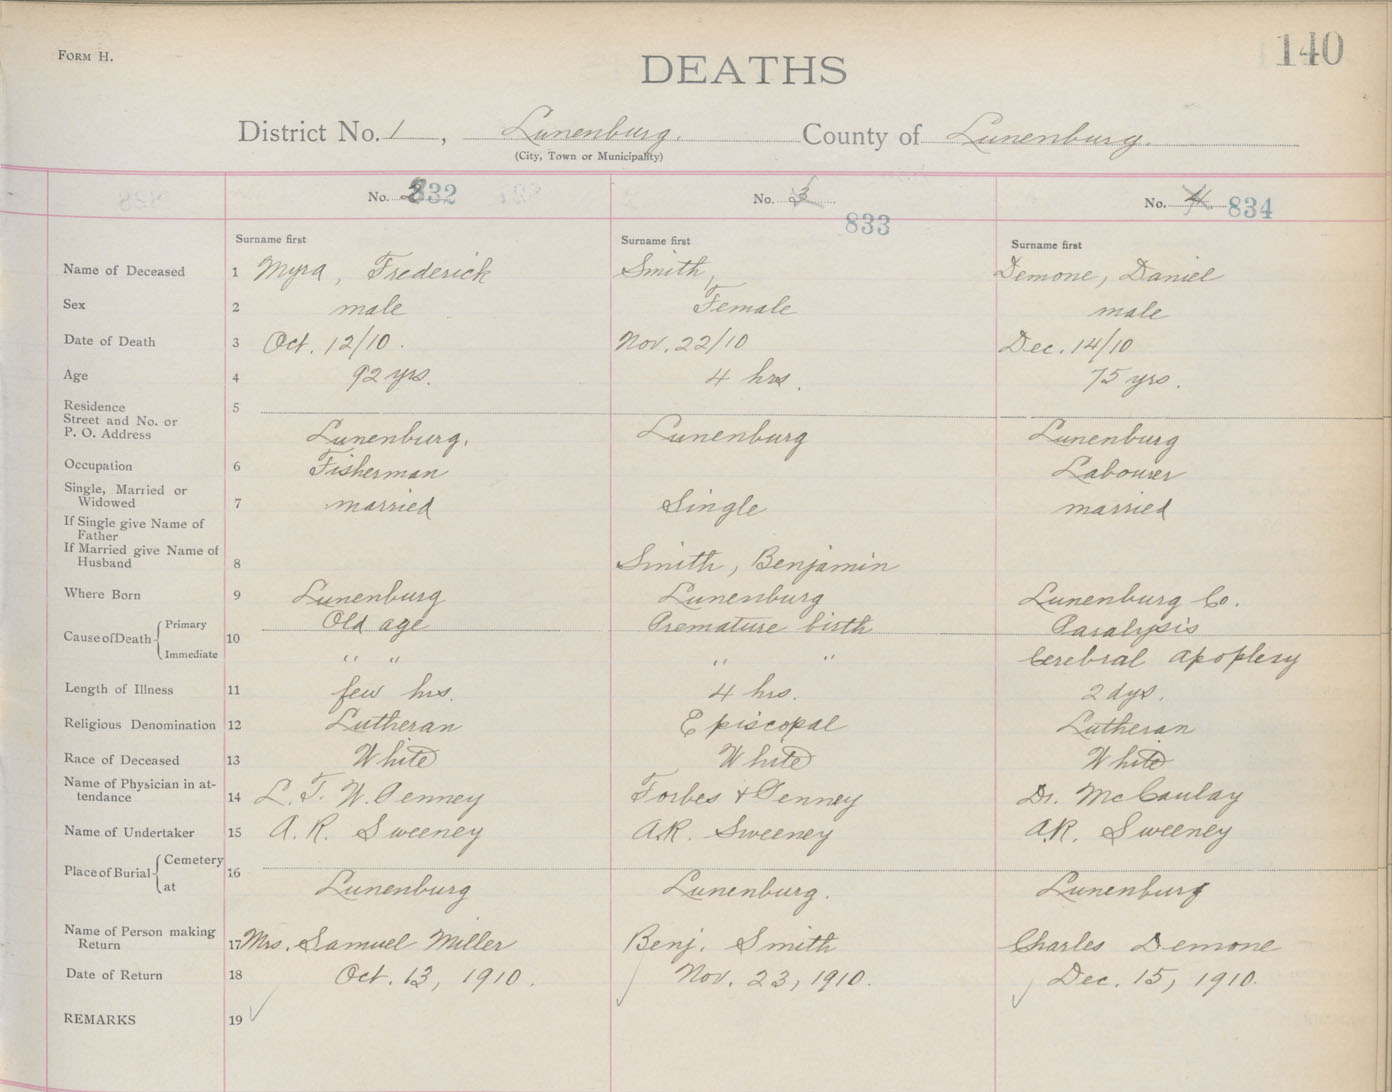 FORM H.
140
DEATHS
District No. 1, Lunenburg. County of Lunenburg.
(City, Town or Municipality)
No. 2 832 No. 3 833 No. 4 834
Surname first Surname first Surname first
Name of Deceased 1 Myra, Frederick Smith, Demone, Daniel
Sex 2 male Female male
Date of Death 3 Oct. 12/10. Nov. 22/10 Dec. 14/10
Age 4 92 yrs. 4 hrs. 75 yrs.
Residence 5
Street and No. or
P. O. Address Lunenburg. Lunenburg Lunenburg
Occupation 6 Fisherman Labourer
Single, Married or
Widowed 7 married Single married
If Single give Name of
Father
If Married give Name of
Husband 8 Smith, Benjamin
Where Born 9 Lunenburg Lunenburg Lunenburg Co.
Cause of Death Primary 10 Old age Premature birth Paralysis
Immediate " " " " Cerebral Apoplexy
Length of Illness 11 few hrs. 4 hrs. 2 dys.
Religious Denomination 12 Lutheran Episcopal Lutheran
Race of Deceased 13 White White White
Name of Physician in at-
tendance 14 L. T. W. Penney Forbes + Penney Dr. McCaulay
Name of Undertaker 15 A. R. Sweeney A.R. Sweeney A.R. Sweeney
Place of Burial Cemetery 16
at Lunenburg Lunenburg. Lunenburg
Name of Person making
Return 17 Mrs. Samuel Miller Benj. Smith Charles Demone
Date of Return 18 Oct. 13, 1910. Nov. 23, 1910. Dec. 15, 1910.
REMARKS 19